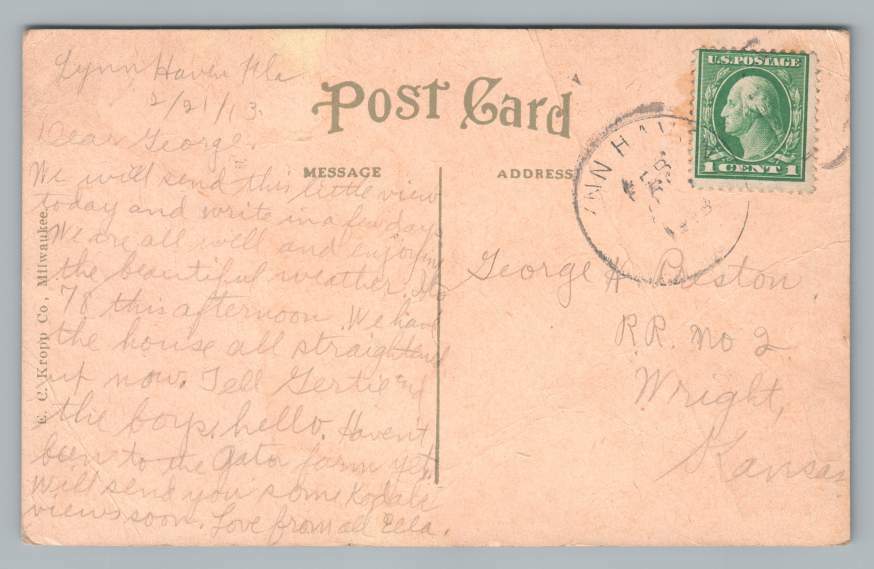 Lynn Haven Fla
2/21/13.
Dear George.
We will send this little view
today and write in a few days
We are all well and enjoying
the beautiful weather. Its
78 this afternoon. We have
the house all straightend
up now. Tell Gertie and
the boys hello. Havent
been to the Gator farm yet.
Will send you some Kodak
views soon. Love from all Ella.
Post Card
MESSAGE
ADDRESS
E. C. Kropp Co., Milwaukee.
U.S. POSTAGE
1 CENT 1
NN HAV
FEB
1913
George H. Preston.
R.R. No 2
Wright,
Kansas